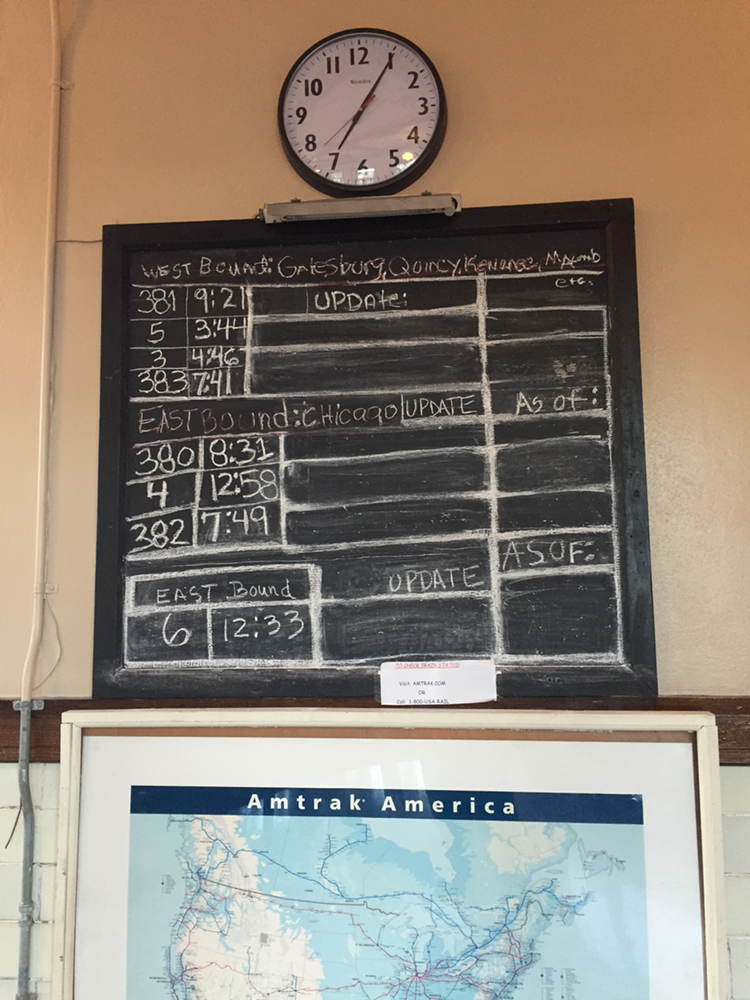 12
1
2
3
4
5
6
7
8
9
10
11
WEST Bound: Galesburg, Quincy, Kewanee, MAcomb
etc.
381 9:21 UPDAte:
5 3:44
3 4:46
383 7:41
EAST Bound: CHicago UPDATE As of:
380 8:31
4 12:58
382 7:49
EAST Bound UPDATE AS OF:
6 12:33
TO CHECK TRAIN STATUS
Visit AMTRAK.COM
OR
Call 1-800-USA RAIL
Amtrak America